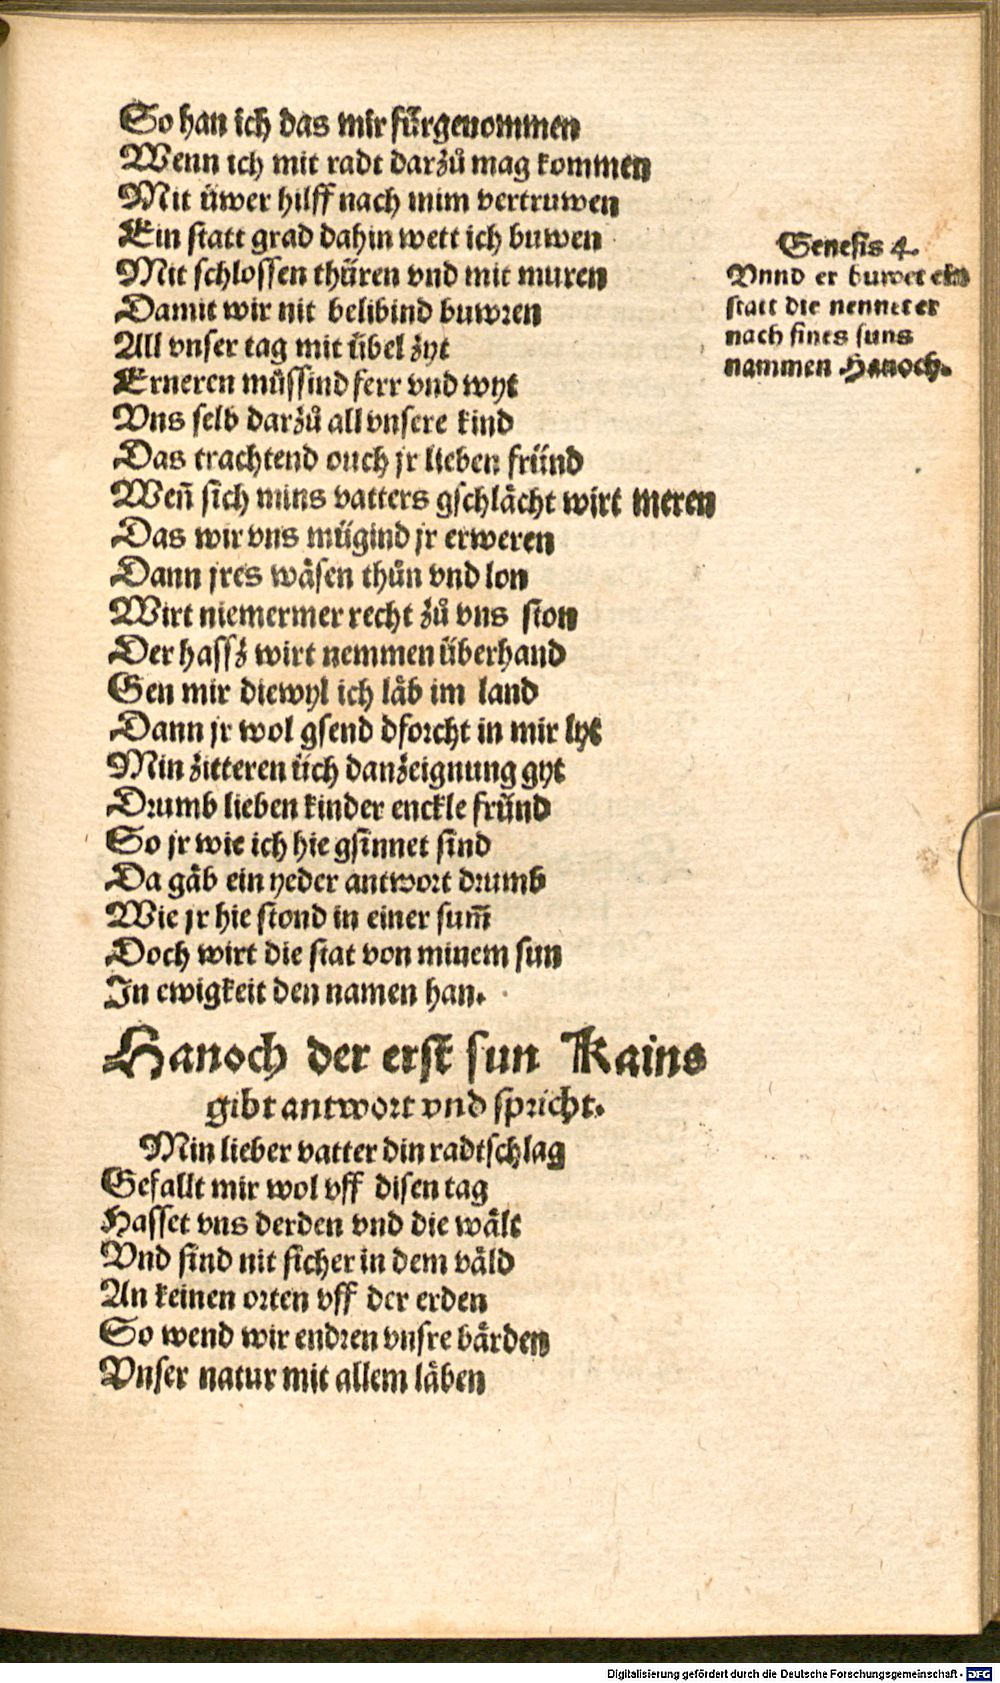 So han ich das mir fürgenommen
Wenn ich mit radt darzů mag kommen
Mit üwer hilff nach mim vertruwen
Ein statt grad dahin wett ich buwen
Mit schlossen thüren vnd mit muren
Damit wir nit belibind buwren
All vnser tag mit übel zyt
Erneren müssind ferr vnd wyt
Vns selb darzů all vnsere kind
Das trachtend ouch jr lieben fründ
Weñ sich mins vatters gschlächt wirt meren
Das wir vns mügind jr erweren
Dann jres wäsen thůn vnd lon
Wirt niemermer recht zů vns ston
Der hassz wirt nemmen überhand
Gen mir diewyl ich läb im land
Dann jr wol gsend dforcht in mir lyt
Min zitteren üch danzeignung gyt
Drumb lieben kinder enckle fründ
So jr wie ich hie gsinnet sind
Da gäb ein yeder antwort drumb
Wie jr hie stond in einer sum̃
Doch wirt die stat von minem sun
In ewigkeit den namen han.
Genesis 4.
Vnnd er buwet ein
statt die nennet er
nach sines suns
nammen Hanoch.
Hanoch der erst sun Kains
gibt antwort vnd spricht.
Min lieber vatter din radtschlag
Gefallt mir wol vff disen tag
Hasset vns derden vnd die wält
Vnd sind nit sicher in dem väld
An keinen orten vff der erden
So wend wir endren vnsre bärden
Vnser natur mit allem läben
Digitalisierung gefördert durch die Deutsche Forschungsgemeinschaft - DFG